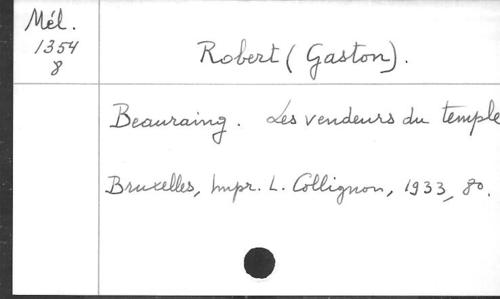 Mél.
1354
8
Robert (Gaston).
Beauraing. Les vendeurs du temple
Bruxelles, Impr. L. Collignon, 1933, 8º.